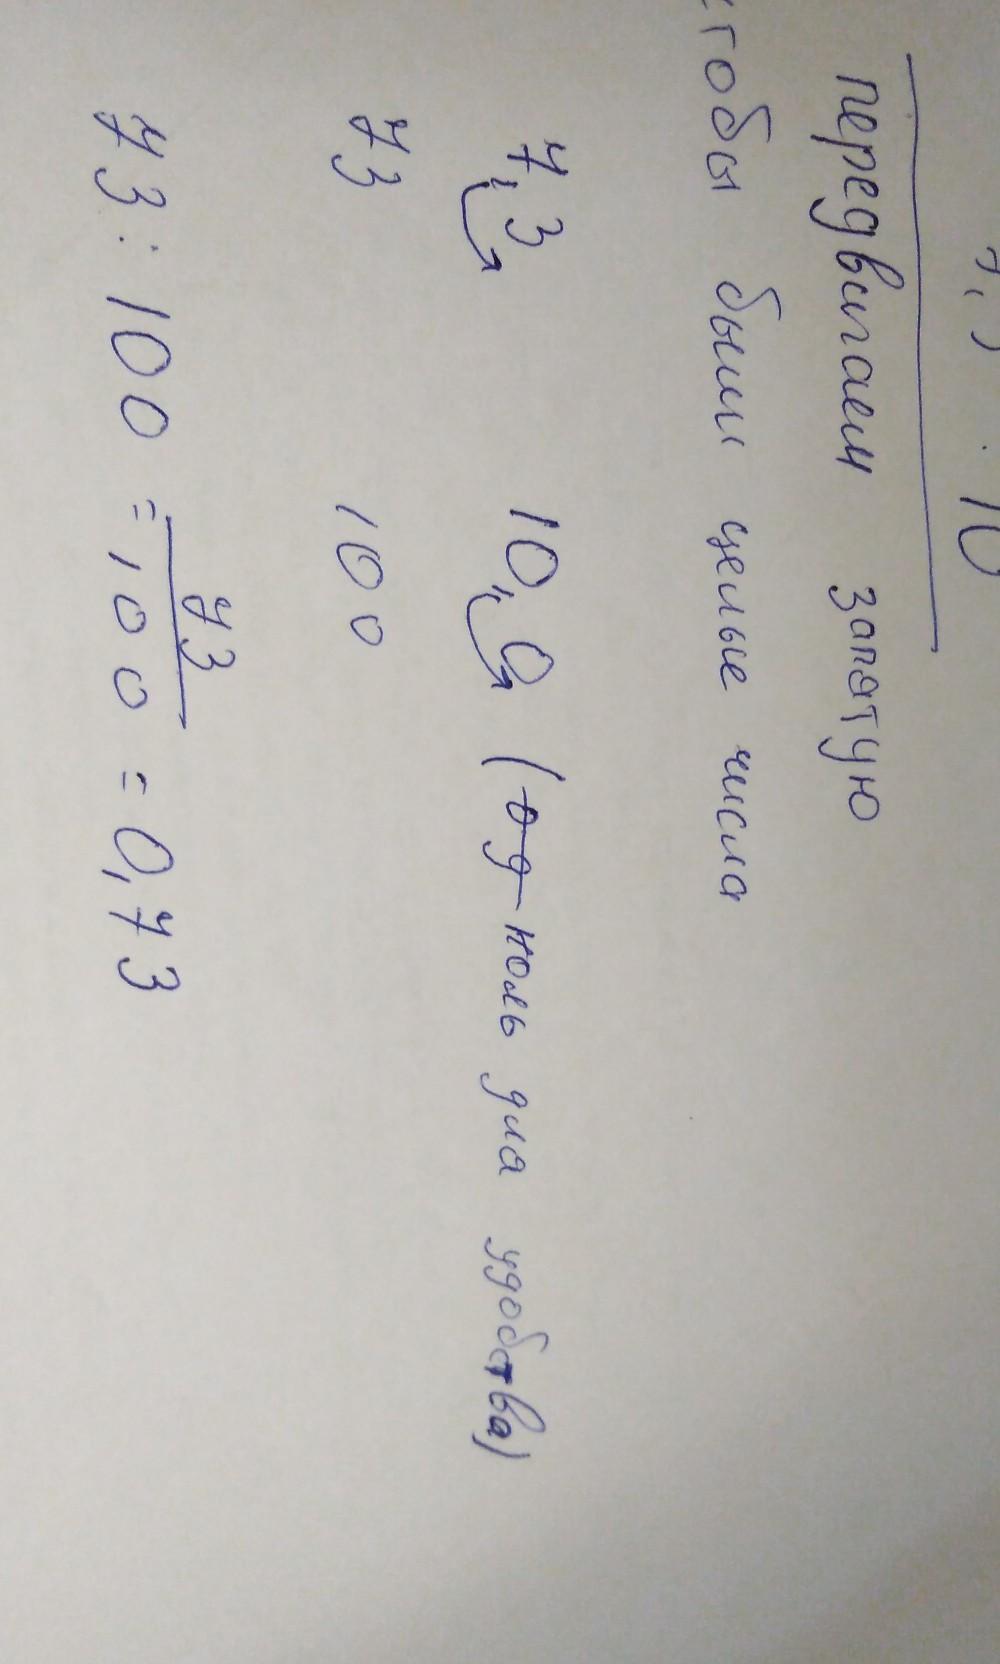 7,3 : 10
передвигаем запятую
чтобы были целые числа
7,3 10,0 (од ноль для удобства)
73 100
73 : 100 = 73/100 = 0,73